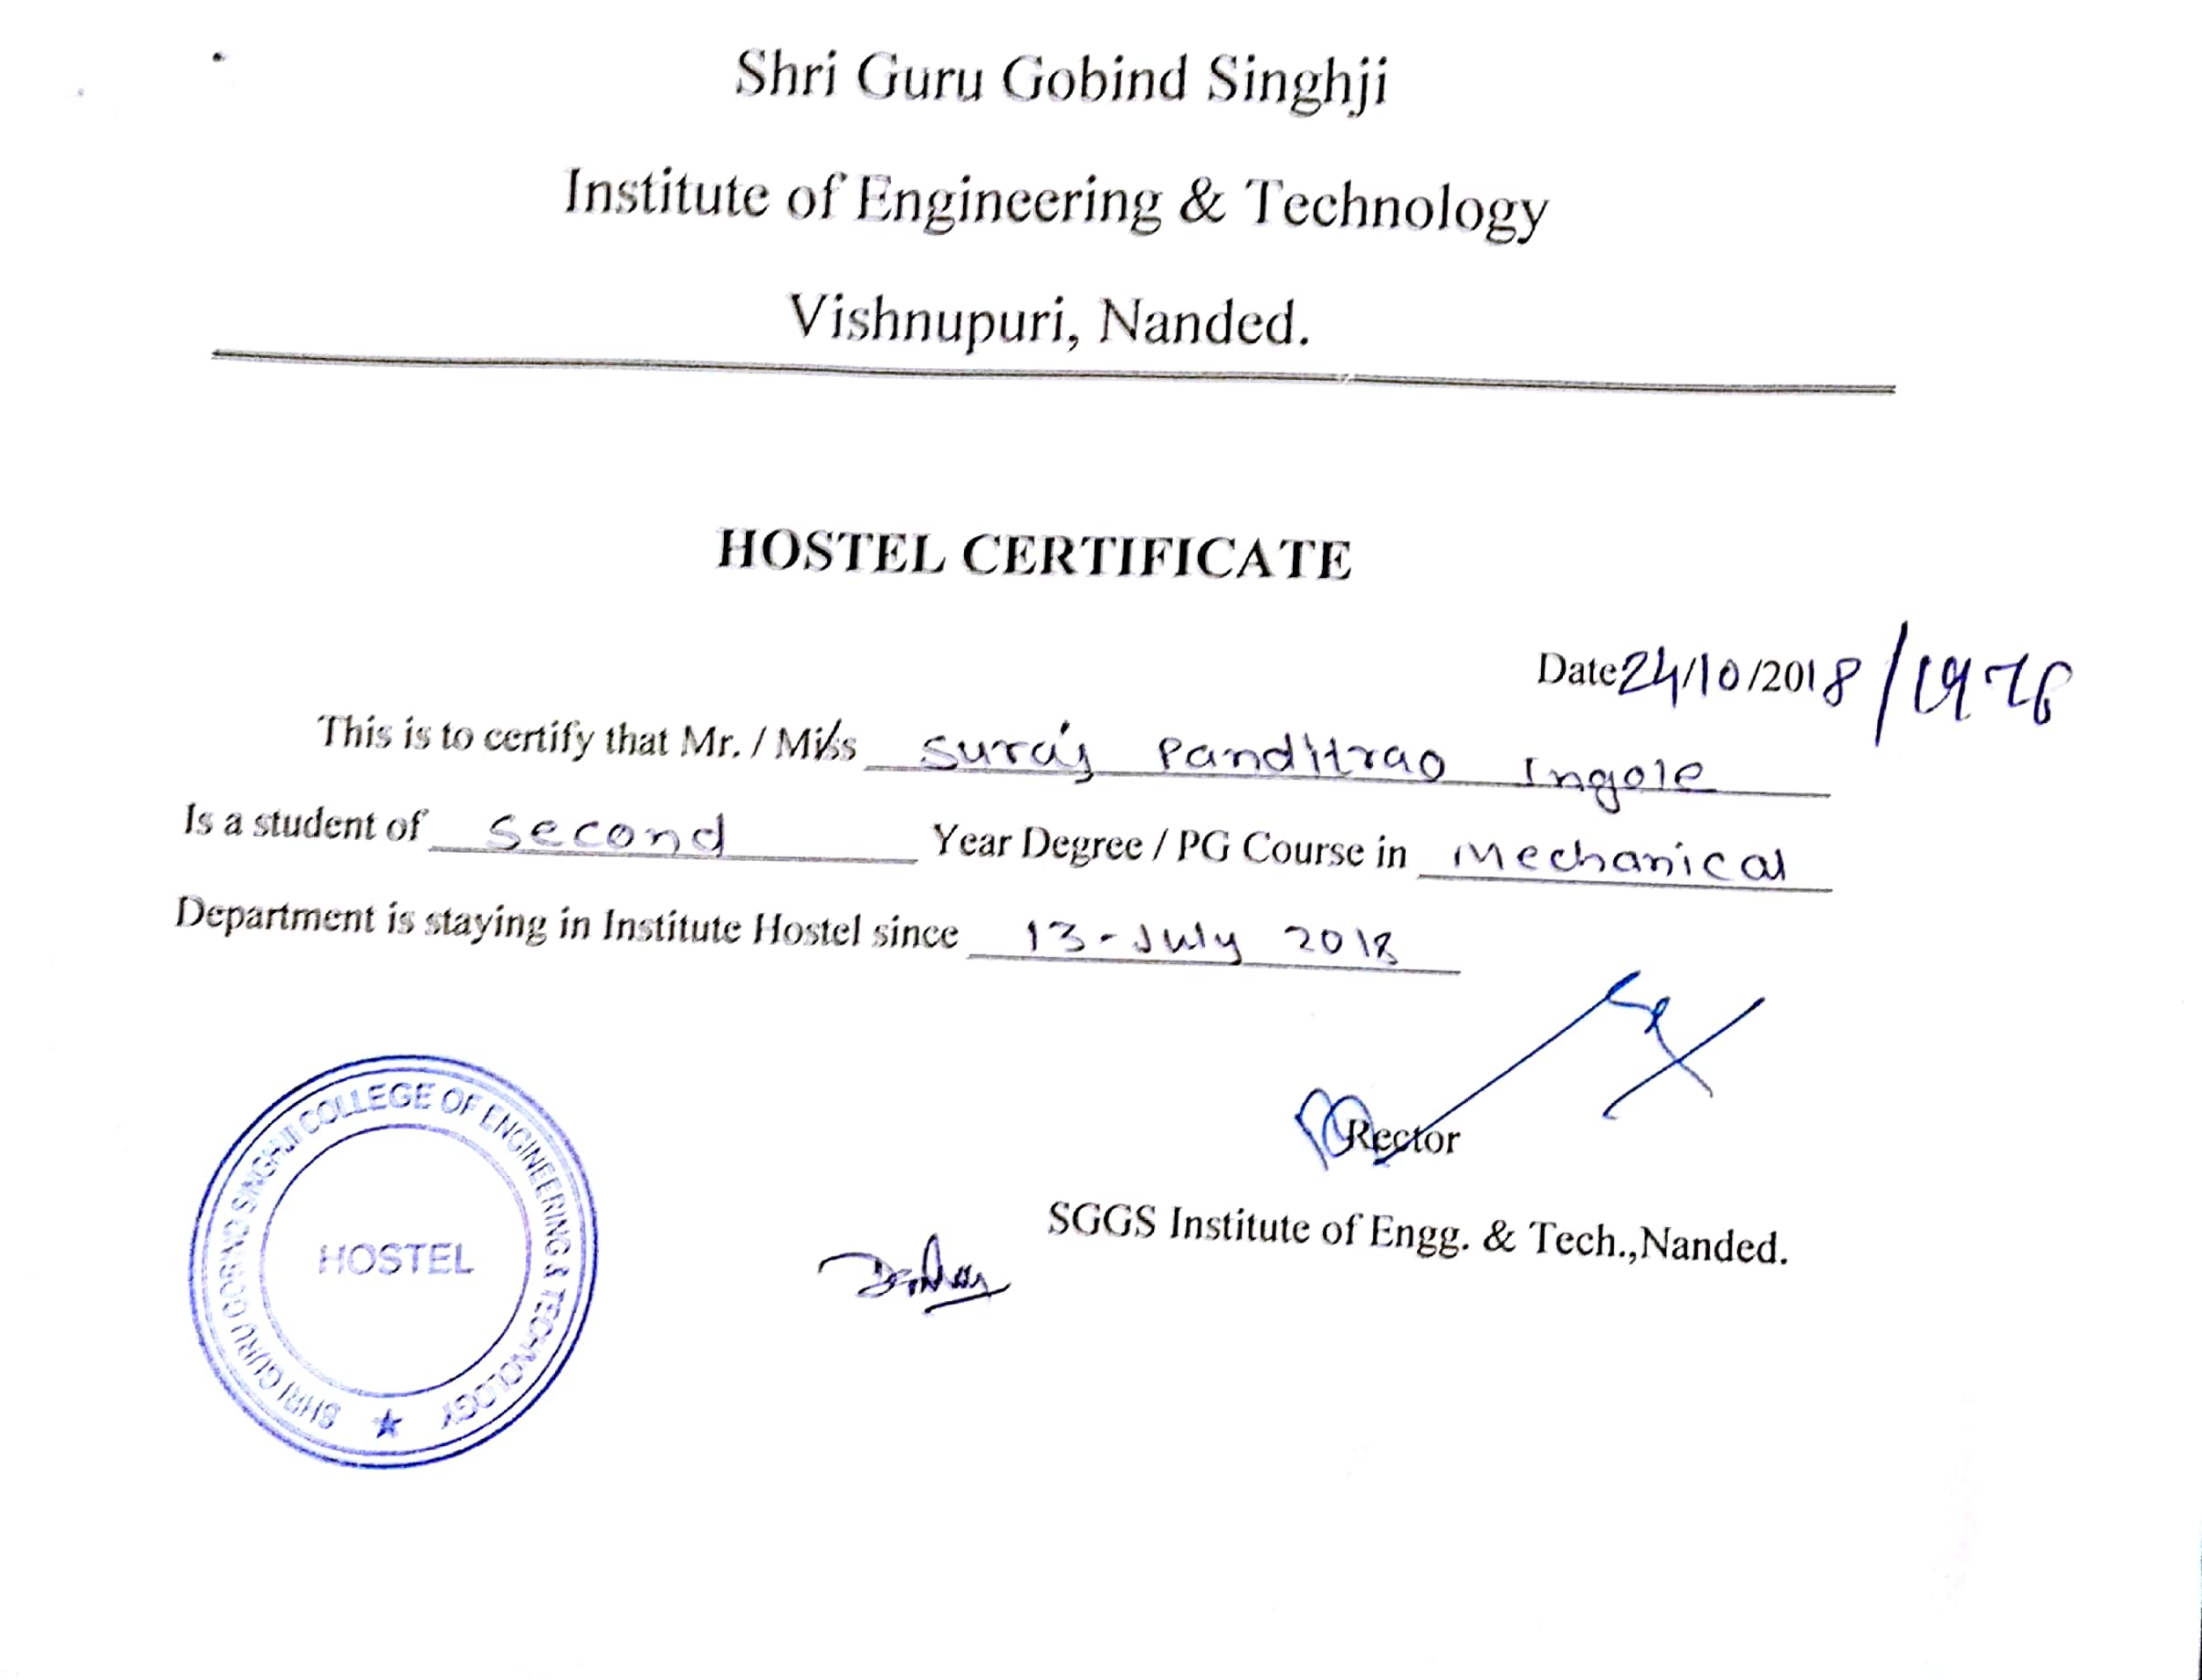 Shri Guru Gobind Singhji
Institute of Engineering & Technology
Vishnupuri, Nanded.
HOSTEL CERTIFICATE
Date 24/10/2018
This is to certify that Mr. / Miss Suraj Panditrao Ingole
Is a student of Second Year Degree / PG Course in Mechanical
Department is staying in Institute Hostel since 13-July 2018
Rector
SGGS Institute of Engg. & Tech.,Nanded.
SHRI GURU GOBIND SINGHJI COLLEGE OF ENGINEERING & TECHNOLOGY
HOSTEL